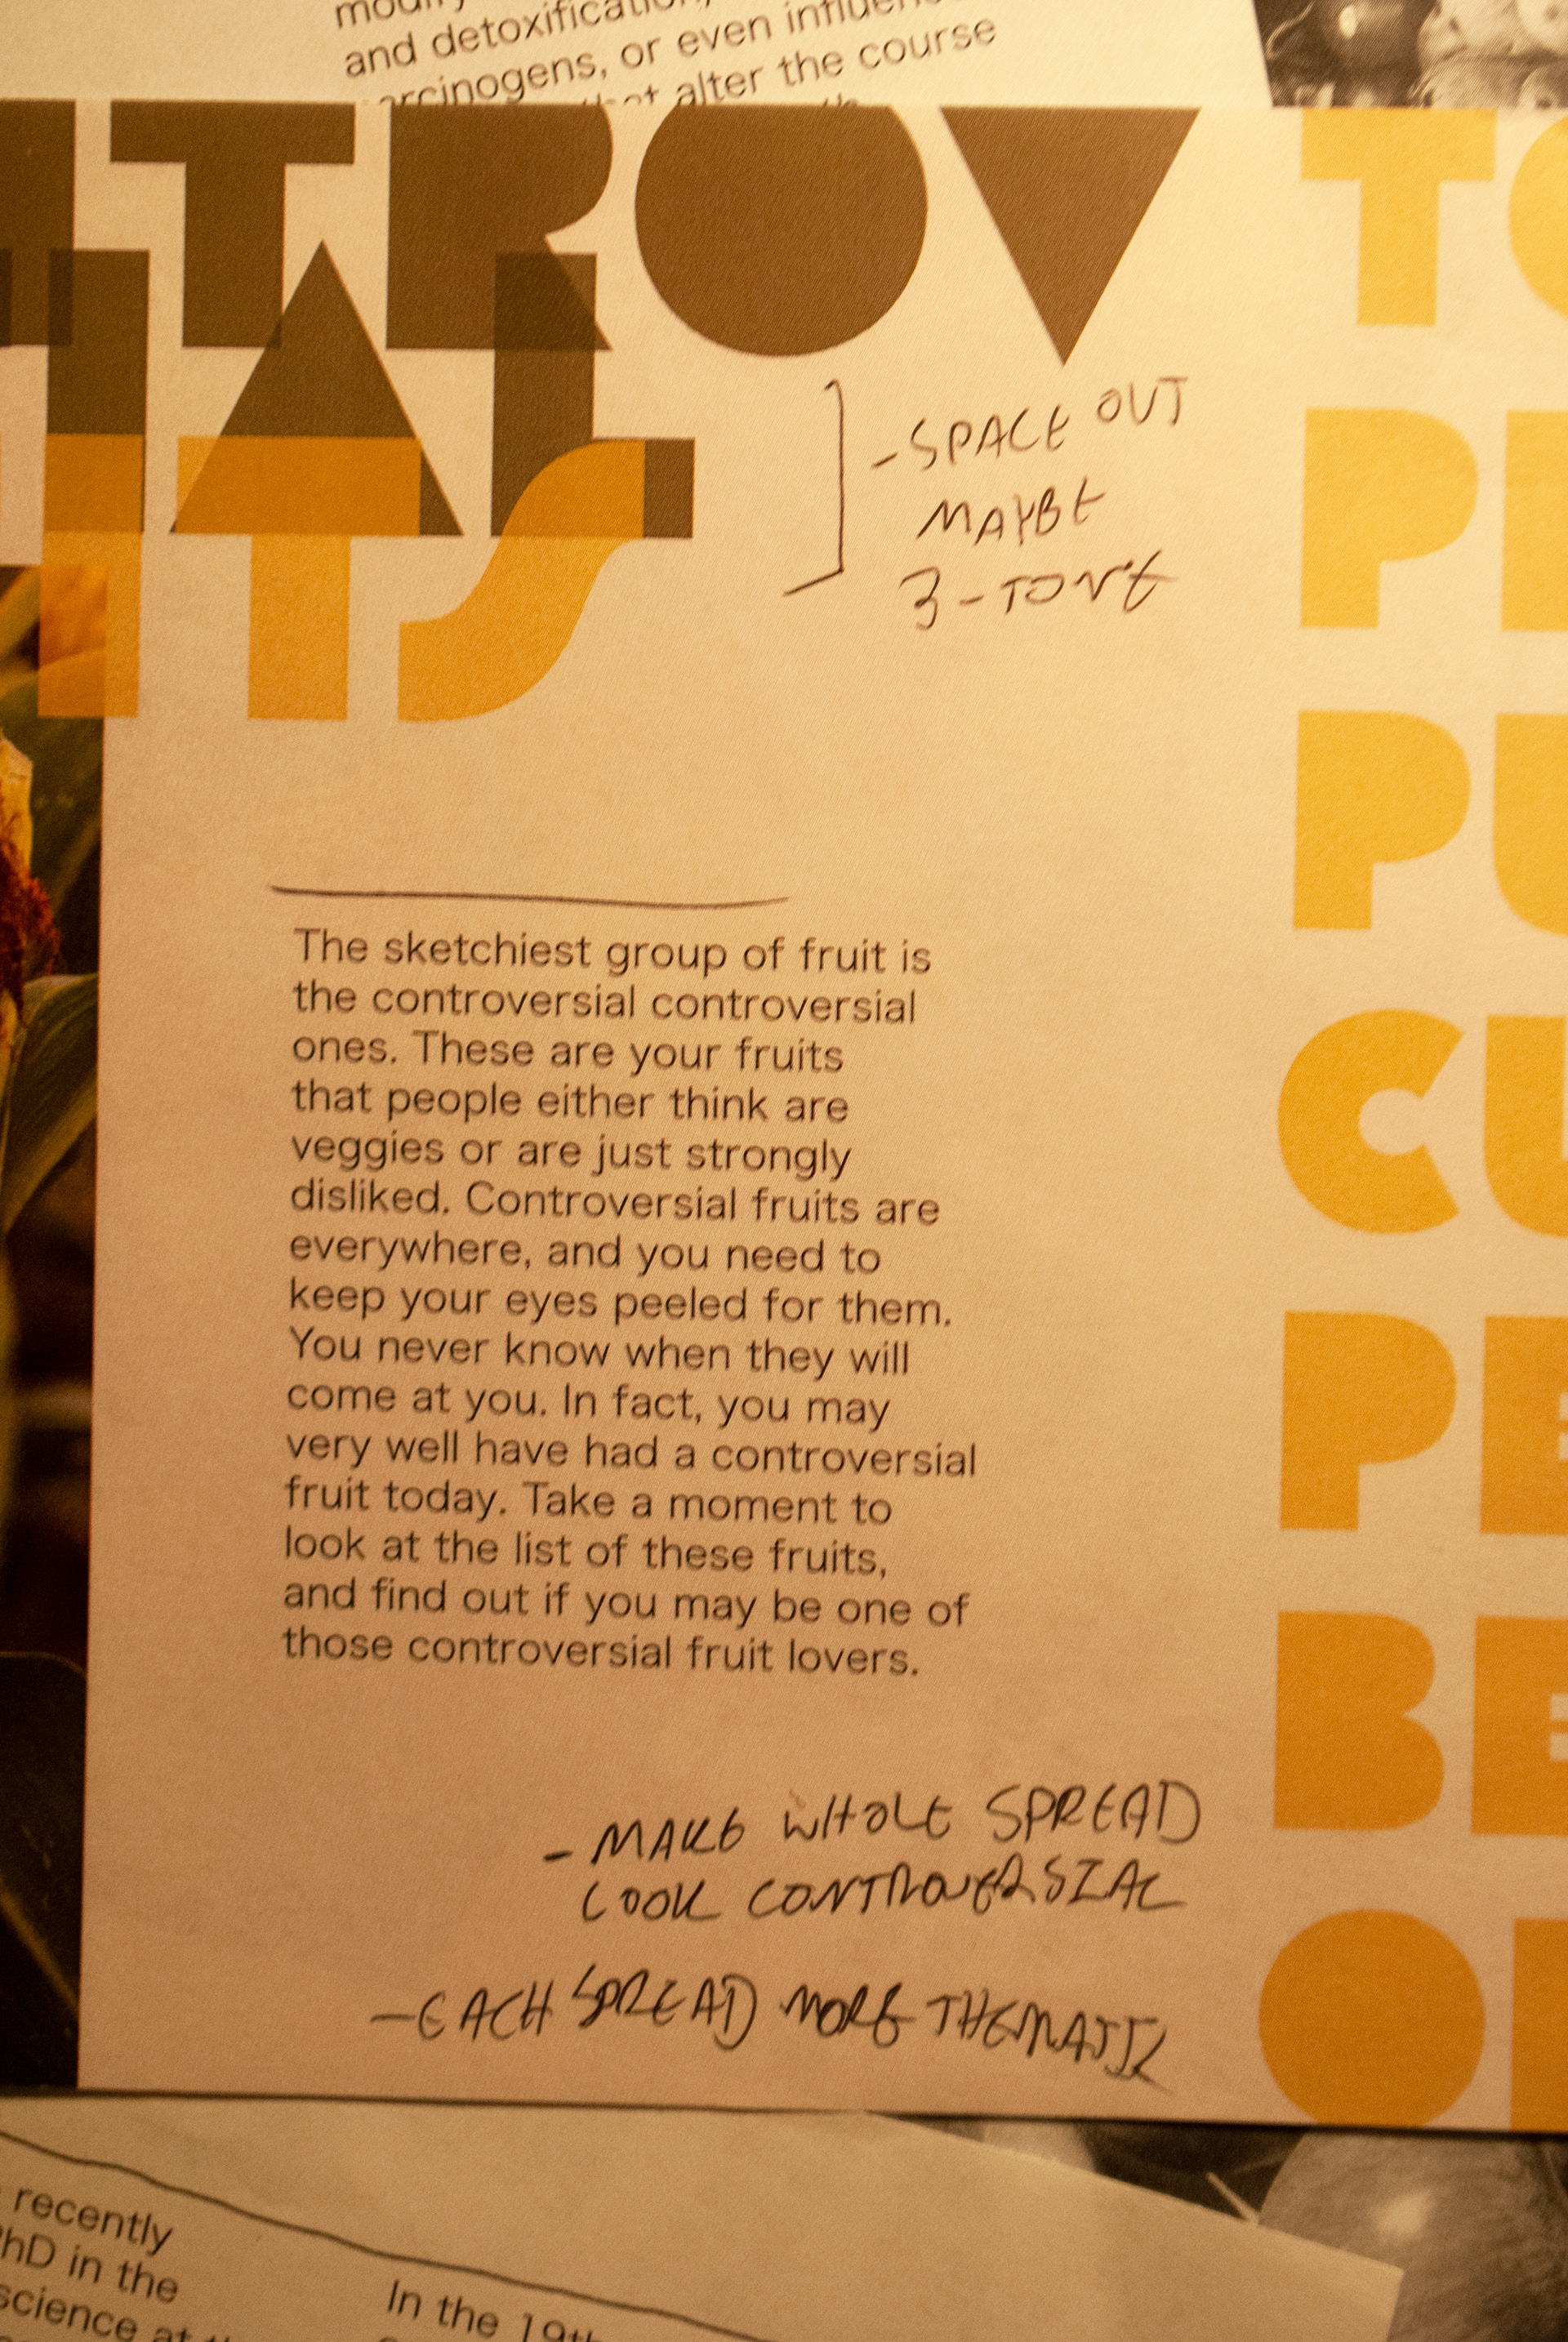 and detoxification,
or even influen
alter the course
TROV
IAL
ITS
- SPACE OUT
MAYBE
3-TONE
The sketchiest group of fruit is
the controversial controversial
ones. These are your fruits
that people either think are
veggies or are just strongly
disliked. Controversial fruits are
everywhere, and you need to
keep your eyes peeled for them.
You never know when they will
come at you. In fact, you may
very well have had a controversial
fruit today. Take a moment to
look at the list of these fruits,
and find out if you may be one of
those controversial fruit lovers.
- MAKE WHOLE SPREAD
LOOK CONTROVERSIAL
- EACH SPREAD MORE THEMATIC
TO
P
PU
CU
PE
BE
O
recently
PhD in the
science at
In the 19th